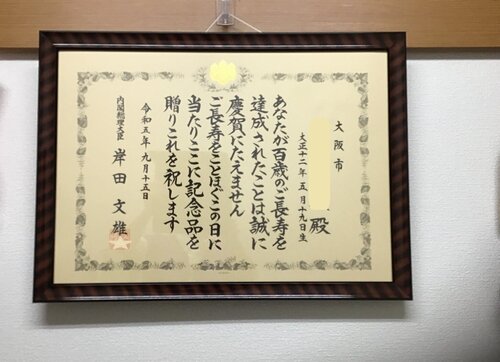 大阪市
殿
大正十二年 五月十九日生
あなたが百歳のご長寿を
達成されたことは誠に
慶賀にたえません
ご長寿をことほぐこの日に
当たりここに記念品を
贈りこれを祝します
令和五年 九月十五日
内閣総理大臣 岸田文雄